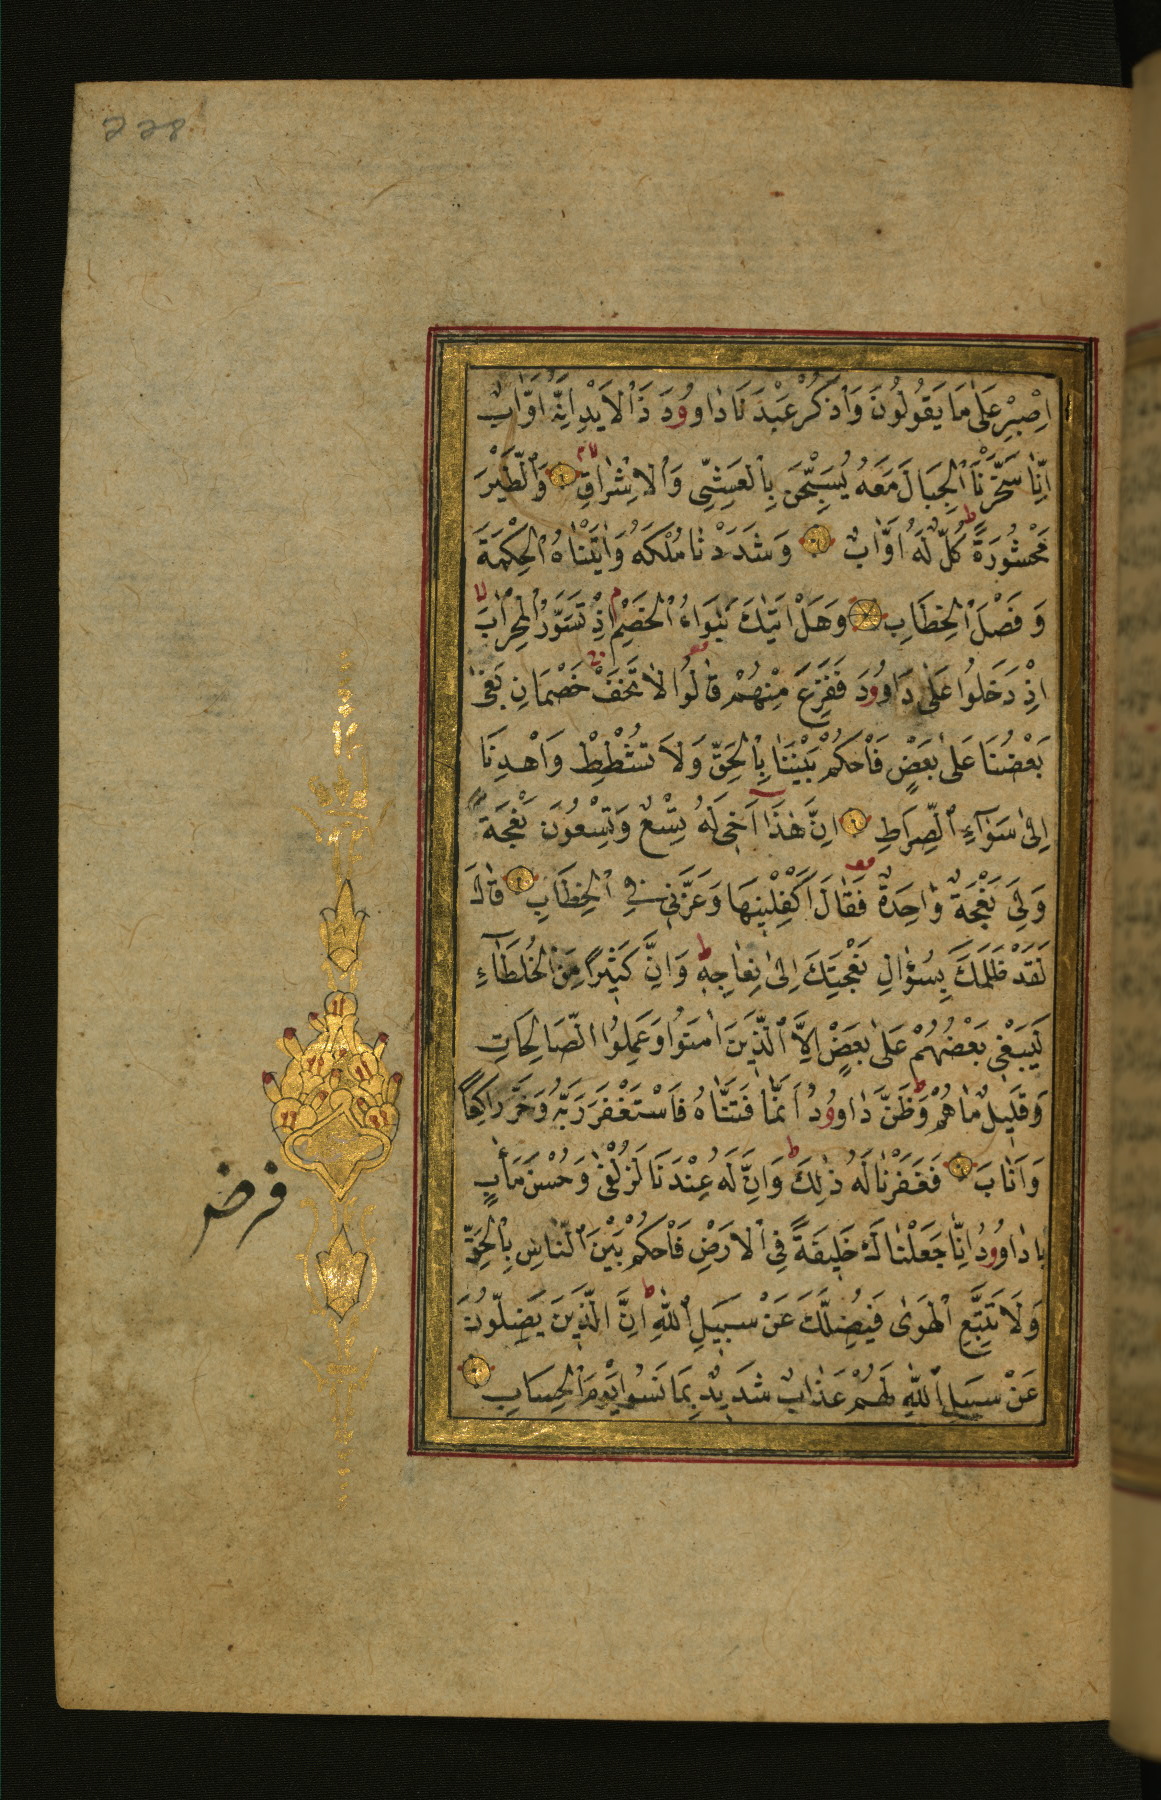 228
اِصْبِرْ عَلٰى مَا يَقُولُونَ وَاذْكُرْ عَبْدَنَا دٰاوُودَ ذَا الْاَيْدِ اِنَّهُ اَوَّابٌ
اِنَّا سَخَّرْنَا الْجِبَالَ مَعَهُ يُسَبِّحْنَ بِالْعَشِيِّ وَالْاِشْرَاقِ وَالطَّيْرَ
مَحْشُورَةً كُلٌّ لَهُ اَوَّابٌ وَشَدَدْنَا مُلْكَهُ وَاٰتَيْنَاهُ الْحِكْمَةَ
وَفَصْلَ الْخِطَابِ وَهَلْ اَتٰيكَ نَبَوٰاءُ الْخَصْمِ اِذْ تَسَوَّرُ الْمِحْرَابَ
اِذْ دَخَلُوا عَلٰى دَاوُودَ فَفَزِعَ مِنْهُمْ قَالُوا لَا تَخَفْ خَصْمَانِ بَغٰى
بَعْضُنَا عَلٰى بَعْضٍ فَاحْكُمْ بَيْنَنَا بِالْحَقِّ وَلَا تُشْطِطْ وَاهْدِنَا
اِلٰى سَوَاءِ الصِّرَاطِ اِنَّ هٰذَا اَخٖى لَهُ تِسْعٌ وَتِسْعُونَ نَعْجَةً
وَلِيَ نَعْجَةٌ وٰاحِدَةٌ فَقَالَ اَكْفِلْنٖيهَا وَعَزَّنٖى فِي الْخِطَابِ قَالَ
لَقَدْ ظَلَمَكَ بِسُؤَالِ نَعْجَتِكَ اِلٰى نِعَاجِهٖ وَاِنَّ كَثٖيرًا مِنَ الْخُلَطَآءِ
لَيَبْغٖى بَعْضُهُمْ عَلٰى بَعْضٍ اِلَّا الَّذٖينَ اٰمَنُوا وَعَمِلُوا الصَّالِحَاتِ
وَقَلٖيلٌ مَا هُمْ وَظَنَّ دَاوُودُ اَنَّمَا فَتَنَّاهُ فَاسْتَغْفَرَ رَبَّهُ وَخَرَّ رَاكِعًا
وَاَنَابَ فَغَفَرْنَا لَهُ ذٰلِكَ وَاِنَّ لَهُ عِنْدَنَا لَزُلْفٰى وَحُسْنَ مَاٰبٍ
يَا دَاوُودُ اِنَّا جَعَلْنَاكَ خَلٖيفَةً فِي الْاَرْضِ فَاحْكُمْ بَيْنَ النَّاسِ بِالْحَقِّ
وَلَا تَتَّبِعِ الْهَوٰى فَيُضِلَّكَ عَنْ سَبٖيلِ اللّٰهِ اِنَّ الَّذٖينَ يَضِلُّونَ
عَنْ سَبٖيلِ اللّٰهِ لَهُمْ عَذَابٌ شَدٖيدٌ بِمَا نَسُوا يَوْمَ الْحِسَابِ
فرض